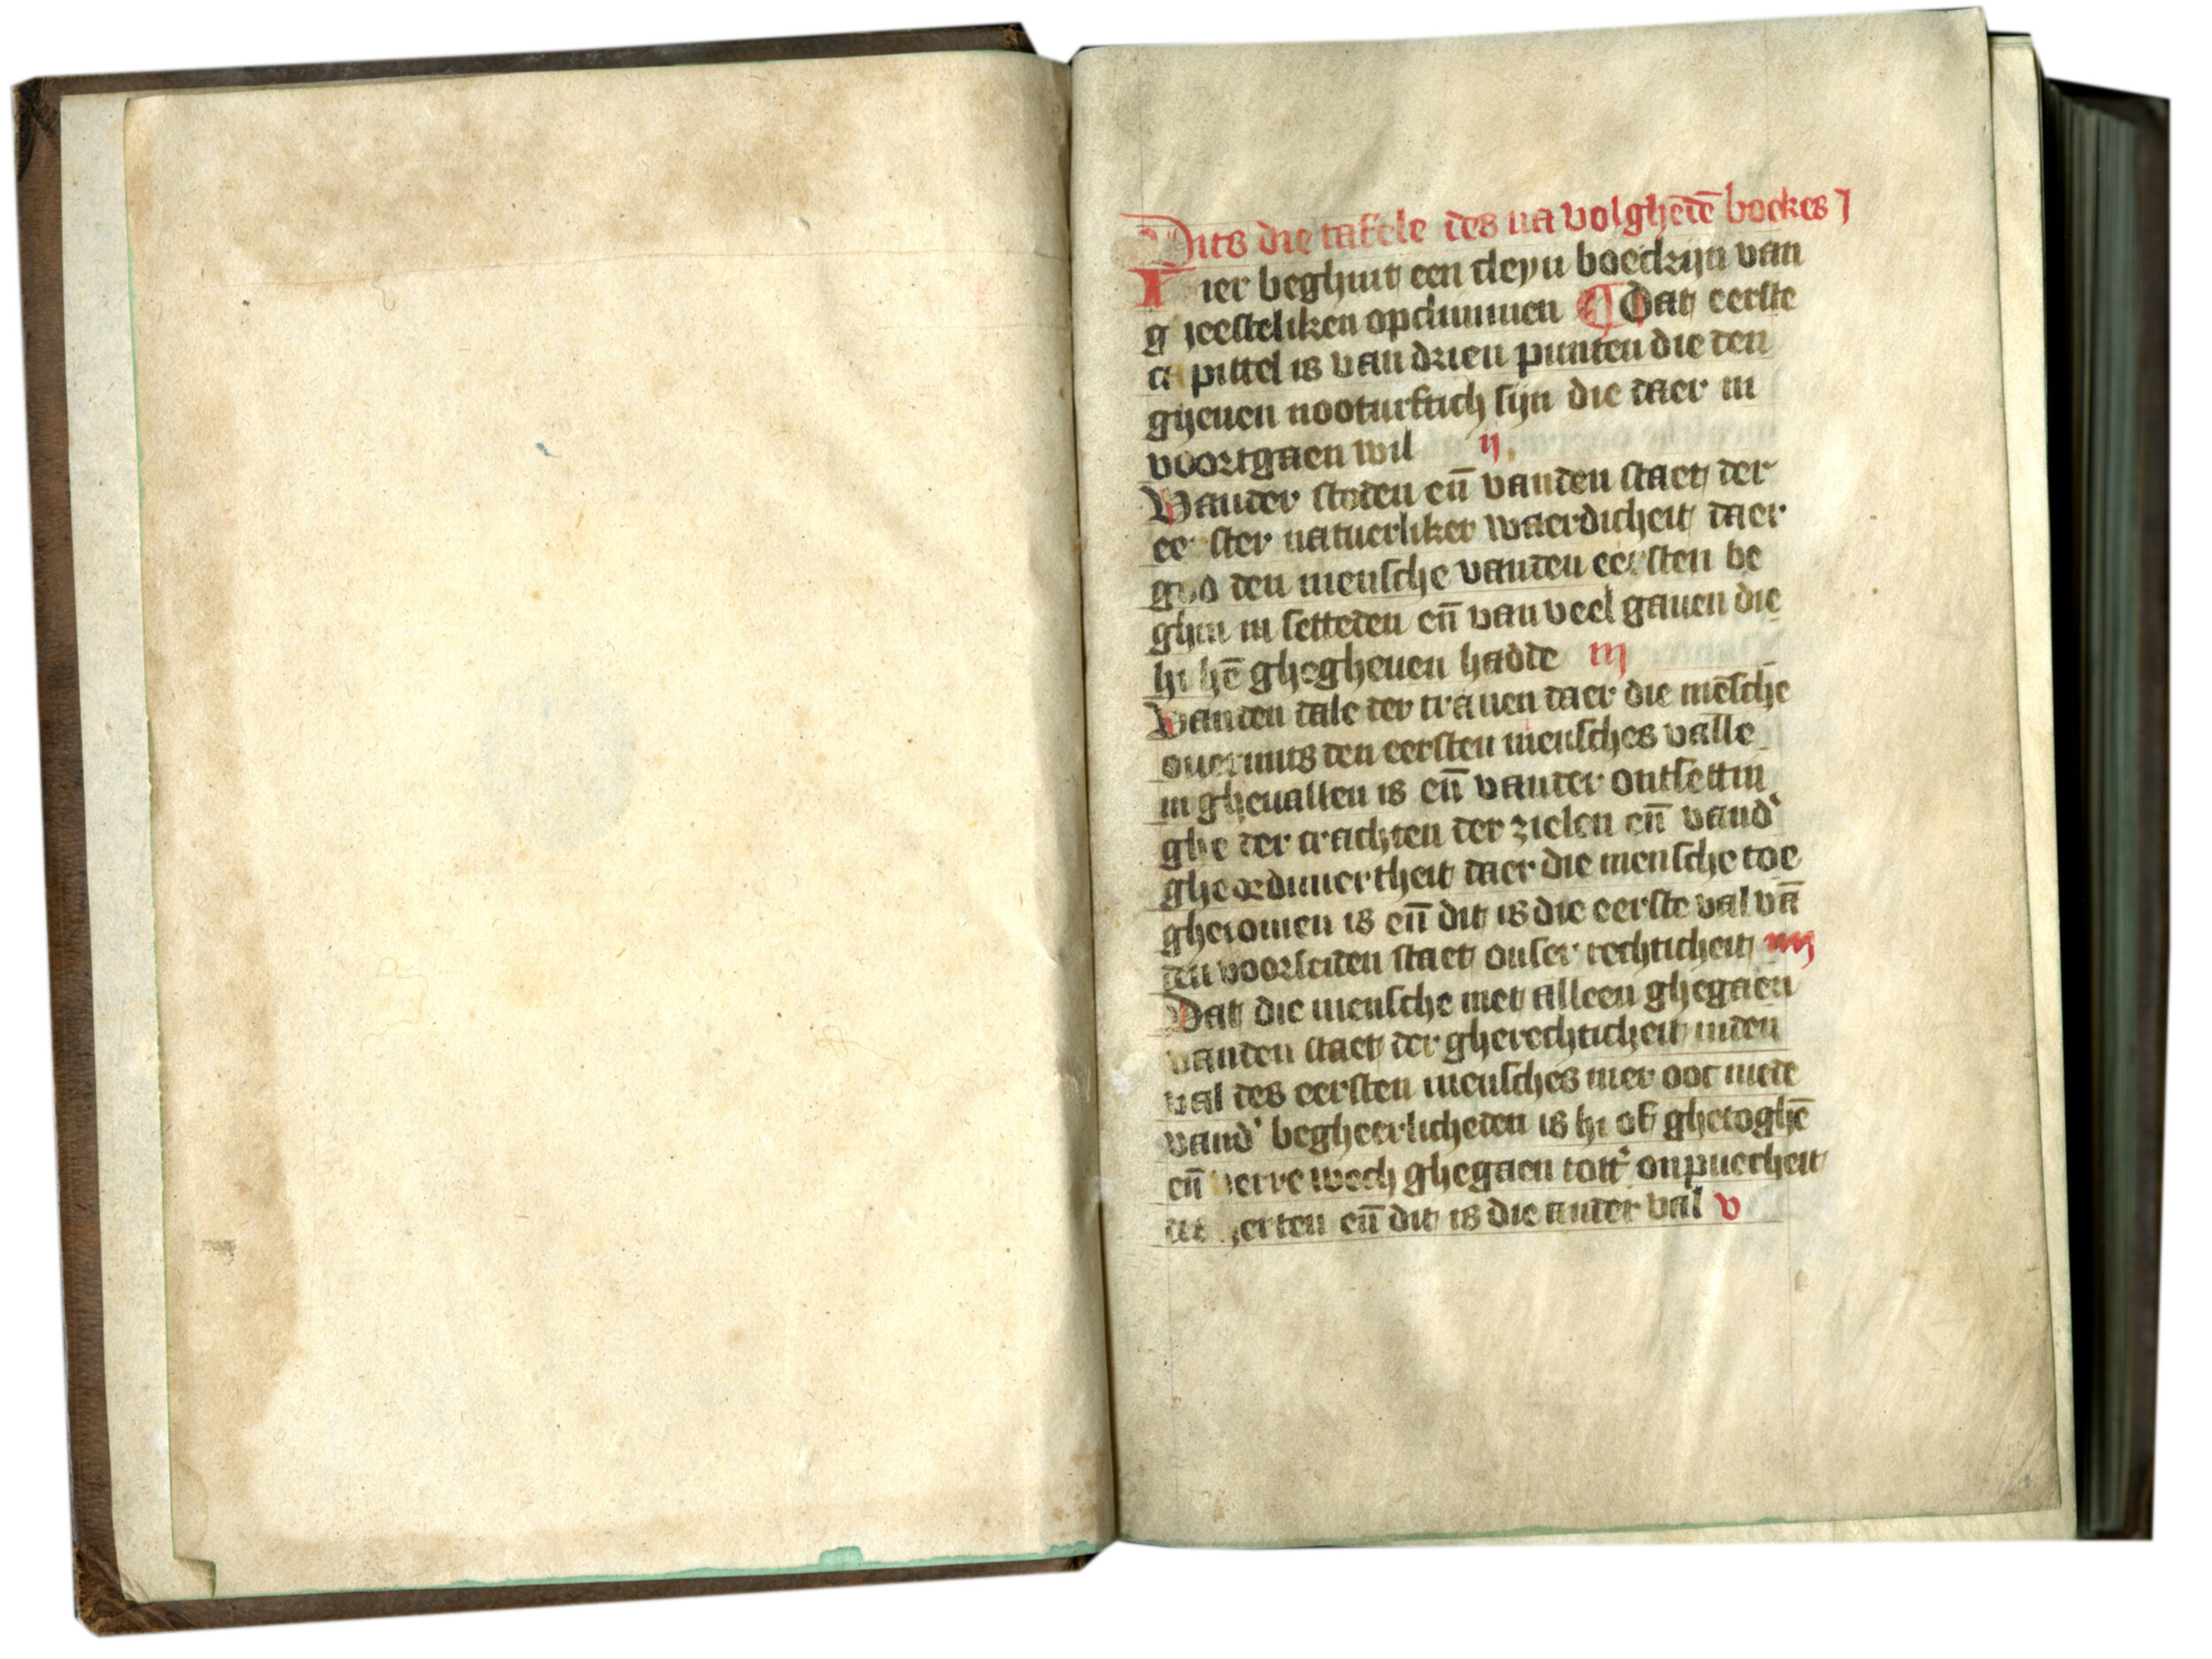 Dits die tafele des na volghēdē boekes j
Hier beghint een cleyn boeckijn van
gheesteliken opclimmen ¶ Dat eerste
capittel is van drien punten die den
ghenen nootturftich sijn die daer in
voortgaen wil ij
Vander steden eñ vanden staet der
eerster natuerliker waerdicheit daer
god den mensche vanden eersten be
ghin in setteden eñ van veel gauen die
hi hē ghegheuen hadde iij
Vanden dale der tranen daer die mēsche
ouermits den eersten mensches valle
in gheuallen is eñ vander ontsettin
ghe der crachten der zielen eñ vand'
gheordinertheit daer die mensche toe
ghecomen is eñ dit is die eerste val vā
den voorseiden staet onser rechticheit iiij
Dat die mensche niet alleen ghegaen
vanden staet der gherechticheit inden
val des eersten mensches mer ooc mede
vand' begheerlicheden is hi of ghetoghē
eñ verre wech ghegaen tott' onpuerheit
der herten eñ dit is die ander val v